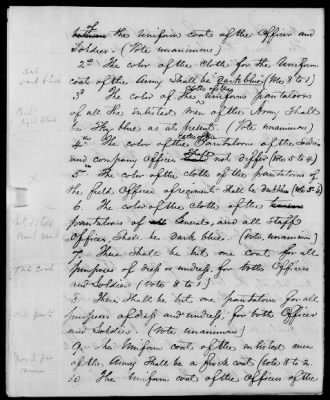 the uniform coat of the Officer and
Soldier. (Vote unanimous)
2nd The color of the Cloth for the Uniform
coat of the Army Shall be dark blue (Vote 8 to 1)
cloth of the
3d The Color of the uniform pantaloons
of all the enlisted men of the Army Shall
be Sky blue as at present. (Vote unanimous)
4th The color of the Pantaloons of the Soldier
and company Officer Shall not differ (Vote 5 to 4)
5th The color of the cloth of the pantaloons of
the field Officers of regiments Shall be dark blue (Vote 5-4)
6. The color of the cloth of the
pantaloons of General, and all Staff
Officers, Shall be dark blue. (Vote, unanimous)
7. There Shall be but one coat for all
purposes of dress or undress, for both Officer
and Soldier (Vote 8 to 1)
8. There Shall be but one pantaloons for all
purposes of dress and undress, for both Officer
and Soldier. (Vote unanimous)
9. The Uniform coat of the enlisted men
of the Army Shall be a frock coat (Vote 8 to 2.
10 The Uniform coat of the Officers of the
coat
dark blue
light blue
one coat
one pants